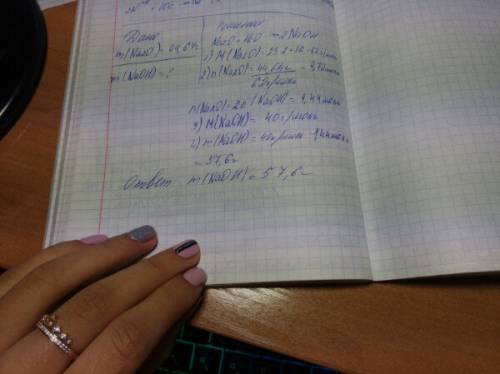 Дано:
m(Na2O)=44,64г
m(NaOH)=?
Решение
Na2O+H2O=2NaOH
1) M(Na2O)=23·2+16=62г/моль
2) n(Na2O)=44,64г
62г/моль
=0,72моль
n(Na2O)=2n(NaOH)=1,44моль
3) M(NaOH)= 40г/моль
4) m(NaOH)=40г/моль·1,44моль
=57,6г
Ответ: m(NaOH)=57,6г